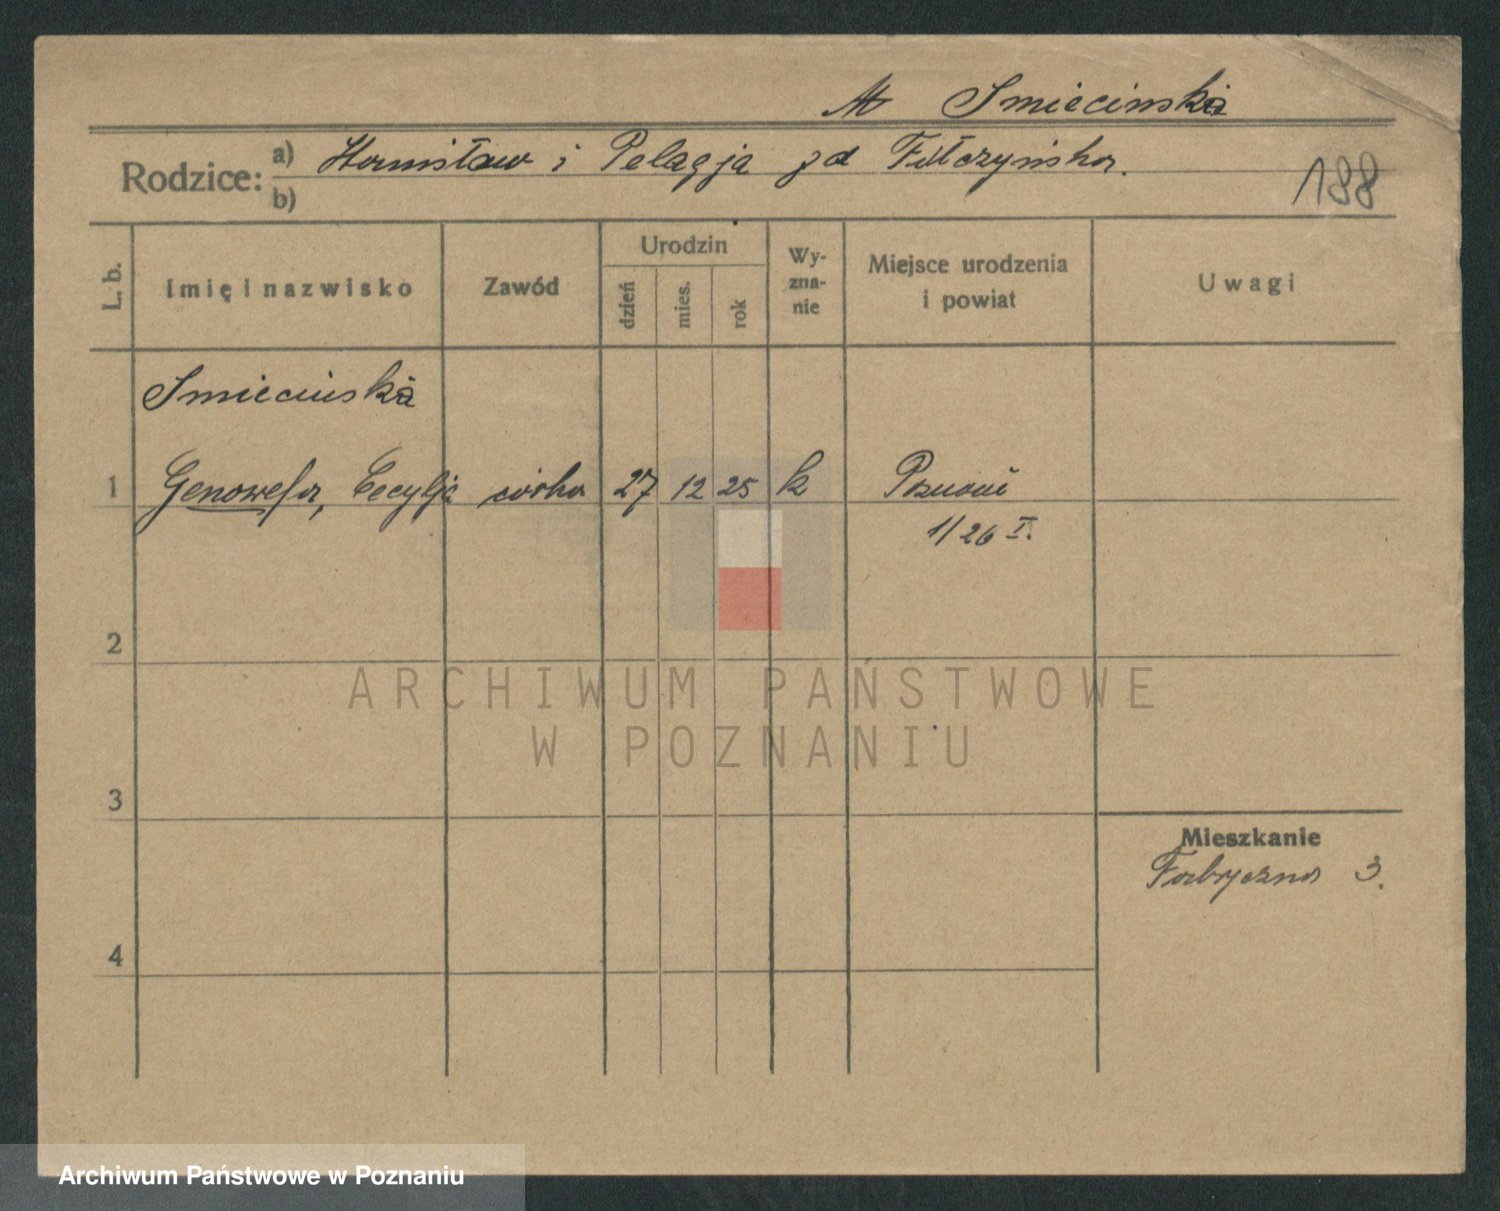 Smiecinska
Rodzice: a) Stanisław i Pelagja zd Fułczyńska.
b)
188
L. b.
Imię i nazwisko
Zawód
Urodzin
dzień
mies.
rok
Wy-
zna-
nie
Miejsce urodzenia
i powiat
Uwagi
Smiecinska
1 Genowefa, Cecylja córka 27 12 25 k Poznań
1/26 I.
2
3
4
Mieszkanie
Fabryczna 3.
ARCHIWUM PAŃSTWOWE
W POZNANIU
Archiwum Państwowe w Poznaniu